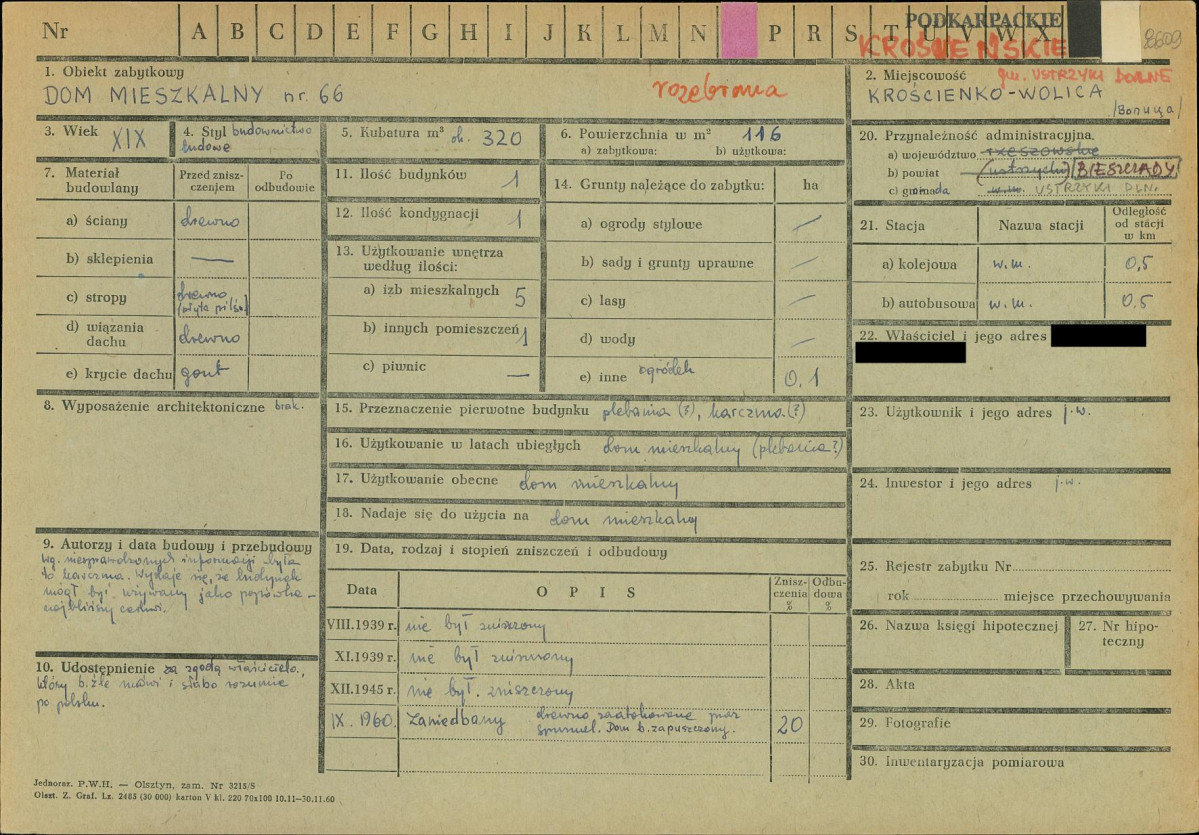 Nr A B C D E F G H I J K L M N P R S T U V W X
PODKARPACKIE
KROŚNEŃSKIE
8609
1. Obiekt zabytkowy
DOM MIESZKALNY nr. 66
rozebrana
2. Miejscowość gm. USTRZYKI DOLNE
KROŚCIENKO-WOLICA
3. Wiek XIX
4. Styl budownictwo
ludowe
5. Kubatura m³ ok. 320
6. Powierzchnia w m² 116
a) zabytkowa: b) użytkowa:
7. Materiał budowlany
Przed zniszczeniem
Po odbudowie
a) ściany drewno
b) sklepienia —
c) stropy drewno
d) wiązania dachu drewno
e) krycie dachu gont
8. Wyposażenie architektoniczne brak.
9. Autorzy i data budowy i przebudowy
Wg. niesprawdzonych informacji była
to karczma. Wydaje się, że budynek
mógł być używany jako popówka –
najbliższy cerkwi.
10. Udostępnienie za zgodą właściciela,
który b. źle mówi i słabo rozumie
po polsku.
11. Ilość budynków 1
12. Ilość kondygnacji 1
13. Użytkowanie wnętrza
według ilości:
a) izb mieszkalnych 5
b) innych pomieszczeń 1
c) piwnic —
14. Grunty należące do zabytku: ha
a) ogrody stylowe —
b) sady i grunty uprawne —
c) lasy —
d) wody —
e) inne ogródek 0,1
15. Przeznaczenie pierwotne budynku plebania (?), karczma (?)
16. Użytkowanie w latach ubiegłych dom mieszkalny (plebania?)
17. Użytkowanie obecne dom mieszkalny
18. Nadaje się do użycia na dom mieszkalny
19. Data, rodzaj i stopień zniszczeń i odbudowy
Data OPIS Zniszczenia % Odbudowa %
VIII.1939 r. nie był zniszczony
XI.1939 r. nie był zniszczony
XII.1945 r. nie był zniszczony
IX. 1960. Zaniedbany drewno zaatakowane przez
Dom b. zapuszczony. 20
20. Przynależność administracyjna.
a) województwo rzeszowskie
b) powiat (ustrzycki) BIESZCZADY
c) gromada w.m. USTRZYKI DLN.
21. Stacja Nazwa stacji Odległość od stacji w km
a) kolejowa w.m. 0,5
b) autobusowa w.m. 0.5
22. Właściciel i jego adres
23. Użytkownik i jego adres j.w.
24. Inwestor i jego adres j.w.
25. Rejestr zabytku Nr
rok miejsce przechowywania
26. Nazwa księgi hipotecznej
27. Nr hipoteczny
28. Akta
29. Fotografie
30. Inwentaryzacja pomiarowa
Jednoraz. P.W.H. — Olsztyn, zam. Nr 3215/S
Olszt. Z. Graf. Lz. 2485 (30 000) karton V kl. 220 70x100 10.11—30.11.60